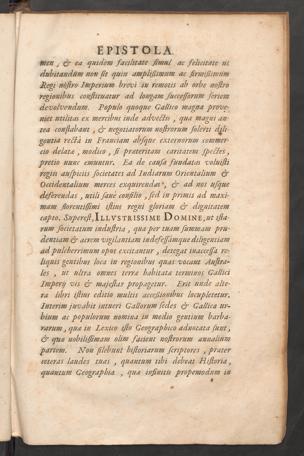 EPISTOLA
men, & ea quidem facilitate simul ac felicitate ut
dubitandum non sit quin amplissimum ac firmissimum
Regi nostro Imperium brevi in remotis ab orbe nostro
regionibus constituatur ad longam successorum seriem
devolvendum. Populo quoque Gallico magna prove-
niet utilitas ex mercibus inde advectis, qua magni an-
tea constabant, & negotiatorum nostrorum solerti dili-
gentia recta in Franciam absque externorum commer-
cio delata, modico, si prateritam caritatem spectes,
pretio nunc emuntur. Ea de causa fundatis voluisti
regiis auspiciis societates ad Indiarum Orientalium &
Occidentalium merces exquirendas, & ad nos usque
deferendas, utili sanè consilio, sed in primis ad maxi-
mam florentissimi istius regni gloriam & dignitatem
capto. Superest, ILLVSTRISSIME DOMINE, ut ista-
rum societatum industria, qua per tuam summam pru-
dentiam & acrem vigilantiam indefessamque diligentiam
ad pulcherrimum opus excitantur, detegat inaccessa re-
liquis gentibus loca in regionibus quas vocant Austra-
les, ut ultra omnes terra habitata terminos Gallici
Imperij vis & majestas propagetur. Erit unde alte-
ra libri istius editio multis accessionibus locupletetur,
Interim juvabit intueri Gallorum sedes & Gallica ur-
bium ac populorum nomina in medio gentium barba-
rarum, qua in Lexico isto Geographico adnotata sunt,
& qua nobilissimam olim facient nostrorum annalium
partem. Non silebunt historiarum scriptores, prater
ceteras laudes tuas, quantum tibi debeat Historia,
quantum Geographia, qua infinitis propemodum in